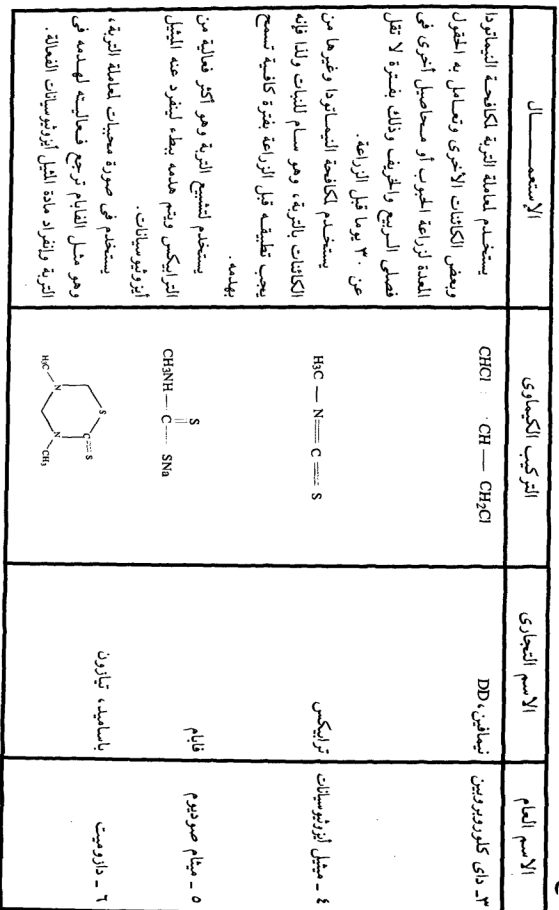 الاسم العام
الاسم التجارى
التركيب الكيماوى
الاستعمـــــــال
٣ـ داى كلوروبروبين
نيمافين، DD
CHCl : · CH — CH₂Cl
يستخدم لمعاملة التربة لمكافحة النيماتودا
وبعض الكائنات الأخرى وتعامل به الحقول
المعدة لزراعة الحبوب أو محاصيل أخرى فى
فصلى الربيع والخريف وذلك بفترة لا تقل
عن ٣٠ يوما قبل الزراعة.
٤ ـ ميثيل أيزوثيوسيانات
ترابيكس
H₃C — N═ C ═ S
يستخدم لمكافحة النيماتودا وغيرها من
الكائنات بالتربة، وهو سام للنبات ولذا فإنه
يجب تطبيقه قبل الزراعة بفترة كافية تسمح
بهدمه.
٥ ـ ميثام صوديوم
فابام
S
||
CH₃NH — C — SNa
يستخدم لتشبيع التربة وهو أكثر فعالية من
الترابيكس ويتم هدمه ببطء لينفرد عنه الميثيل
أيزوثيوسيانات.
٦ ـ دازوميت
باساميد، تيازون
S
C═S
N
N
H₃C
CH₃
يستخدم فى صورة محببات لمعاملة التربة،
وهو مثل الفابام ترجع فعاليته لهدمه فى
التربة وإنفراد مادة المثيل أيزوثيوسيانات الفعالة.